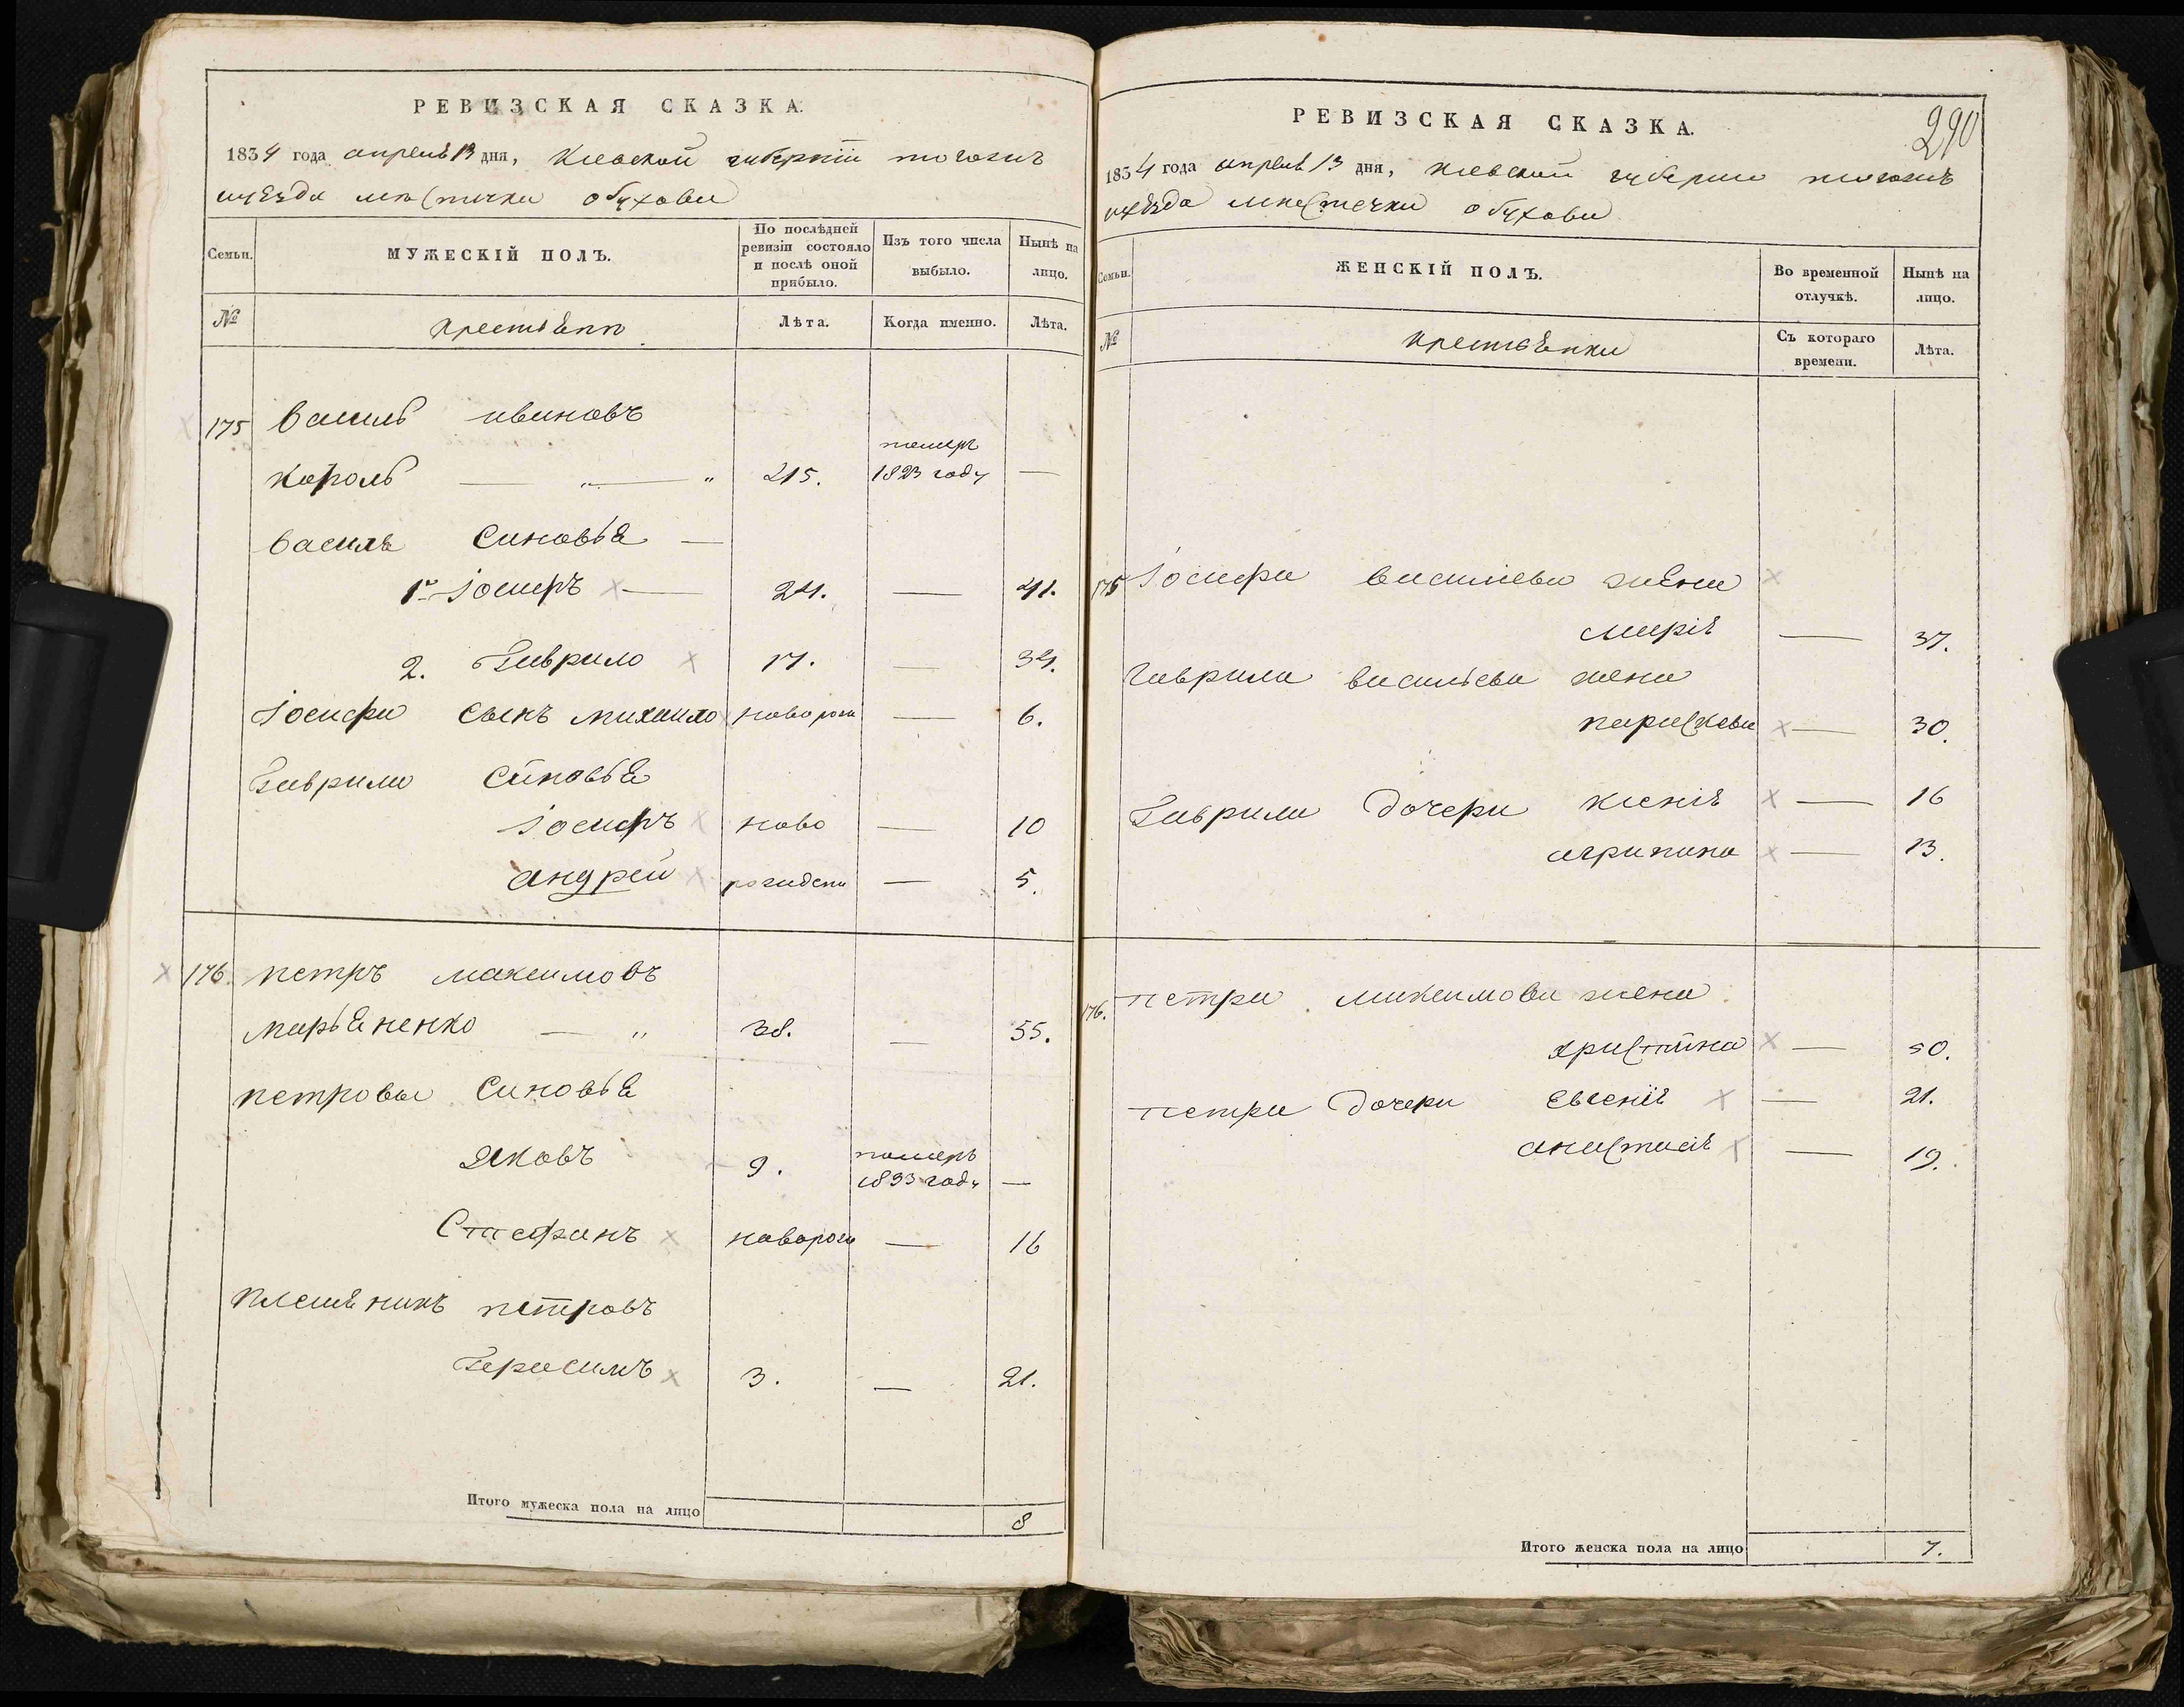 РЕВИЗСКАЯ СКАЗКА.
1834 года апреля 13 дня, Киевской губернiи тогожъ
уезда местечка обухова
Семьи.
МУЖЕСКIЙ ПОЛЪ.
По послѣдней ревизiи состояло и послѣ оной прибыло.
Изъ того числа выбыло.
Нынѣ на лицо.
№
крестьяне
Лѣта.
Когда именно.
Лѣта.
175 Василь ивановъ
Король — „ — „ 215. померъ 1823 году —
Василя Синовья —
1. Iосифъ — 24. — 41.
2. Гаврило 17. — 34.
Iосифа Сынъ михаило новорож — 6.
Гаврила Синовья
Iосифъ ново — 10
андрей рожден — 5.
176. петръ максимовъ
марьяненко — „ 38. — 55.
петровы Синовья
Яковъ 9. померъ 1833 году —
Стефанъ новорож — 16
племяникъ петровъ
Герасимъ 3. — 21.
Итого мужеска пола на лицо 8
290
РЕВИЗСКАЯ СКАЗКА.
1834 года апреля 13 дня, киевской губернии тогожъ
уезда местечка обухова
Семьи.
ЖЕНСКIЙ ПОЛЪ.
Во временной отлучкѣ.
Нынѣ на лицо.
№
крестьянки
Съ котораго времени.
Лѣта.
175 Iосифа василева жена
марiя — 37.
гаврила василева жена
параскева — 30.
Гаврила дочери ксенiя — 16
агрипина — 13.
176. петра максимова жена
христина — 50.
петра дочери Евгенiя — 21.
анастасiя — 19.
Итого женска пола на лицо 7.